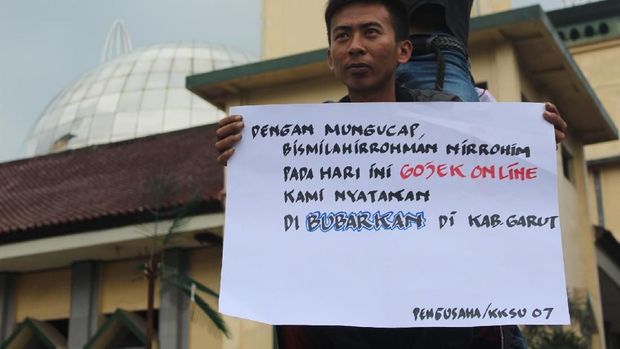 DENGAN MUNGUCAP,
BISMILAHIRROHMAN NIRROHIM
PADA HARI INI GOJEK ONLINE
KAMI NYATAKAN
DI BUBARKAN DI KAB.GARUT
PENGUSAHA/KKSU 07